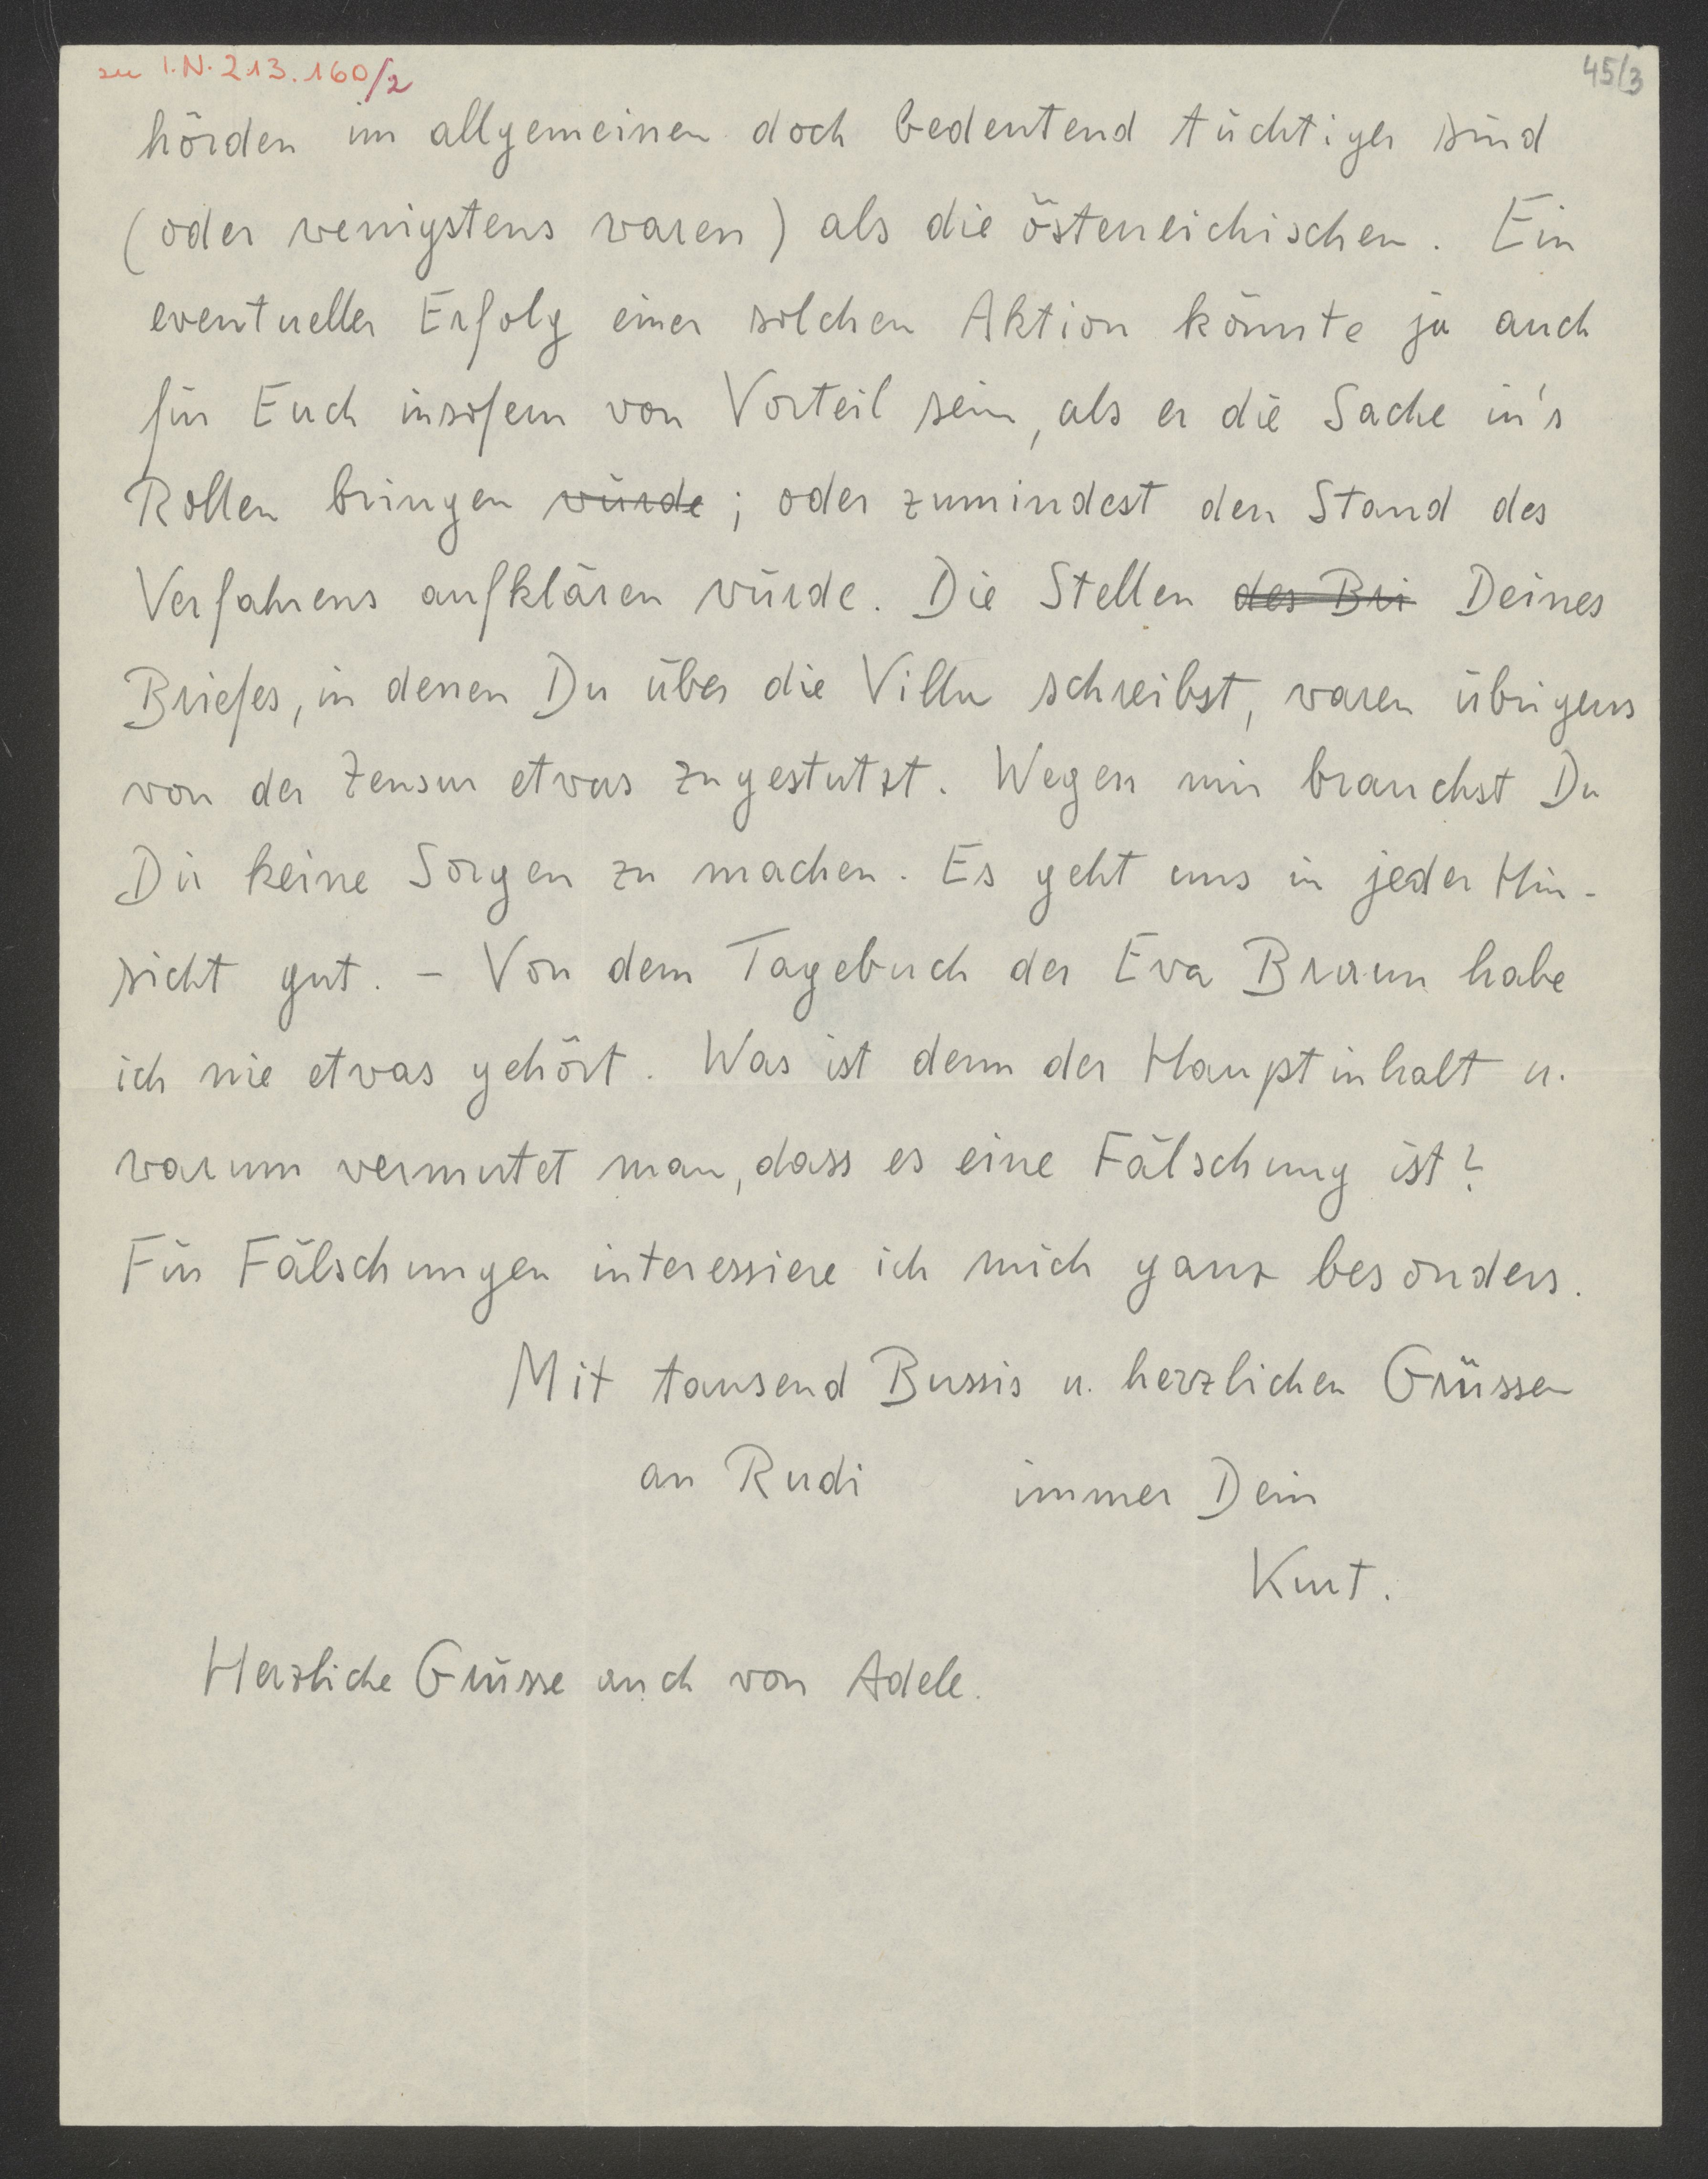 zu I.N. 213.160/2
45/3
hörden im allgemeinen doch bedeutend tüchtiger sind
(oder wenigstens waren) als die österreichischen. Ein
eventueller Erfolg einer solchen Aktion könnte ja auch
für Euch insofern von Vorteil sein, als er die Sache in's
Rollen bringen würde; oder zumindest den Stand des
Verfahrens aufklären würde. Die Stellen des Bri Deines
Briefes, in denen Du über die Villa schreibst, waren übrigens
von der Zensur etwas zugestutzt. Wegen mir brauchst Du
Dir keine Sorgen zu machen. Es geht uns in jeder Hin-
sicht gut. – Von dem Tagebuch der Eva Braun habe
ich nie etwas gehört. Was ist denn der Hauptinhalt u.
warum vermutet man, dass es eine Fälschung ist?
Für Fälschungen interessiere ich mich ganz besonders.
Mit tausend Bussis u. herzlichen Grüssen
an Rudi immer Dein
Kurt.
Herzliche Grüsse auch von Adele.